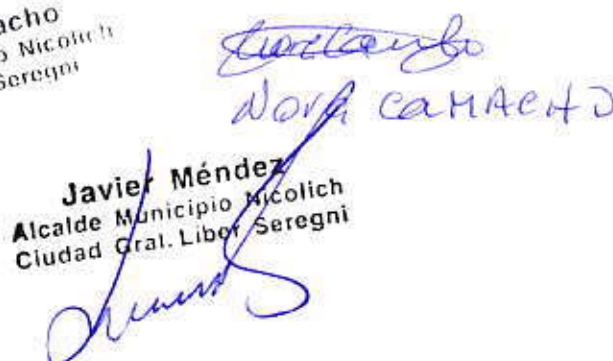 acho
o Nicolich
Seregni
Nora CAMACHO
Javier Méndez
Alcalde Municipio Nicolich
Ciudad Gral. Liber Seregni